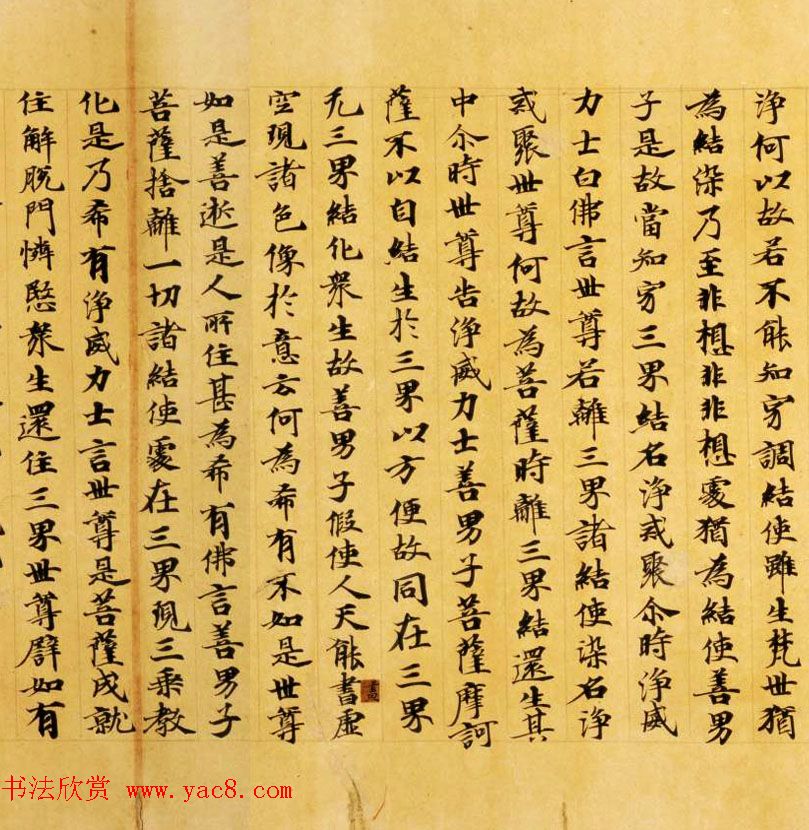 淨何以故若不能知穷調結使雖生梵世猶
為結染乃至非想非非想處猶為結使善男
子是故當知穷三界結名淨戒聚尒時淨威
力士白佛言世尊若離三界諸結使染名淨
戒聚世尊何故為菩薩時離三界結還生其
中尒時世尊告淨威力士善男子菩薩摩訶
薩不以自結生於三界以方便故同在三界
无三界結化衆生故善男子假使人天能書虛
畫
空現諸色像於意云何為希有不如是世尊
如是善逝是人所住甚為希有佛言善男子
菩薩捨離一切諸結使處在三界現三乘教
化是乃希有淨威力士言世尊是菩薩成就
住解脫門憐愍衆生還住三界世尊譬如有
书法欣赏 www.yac8.com